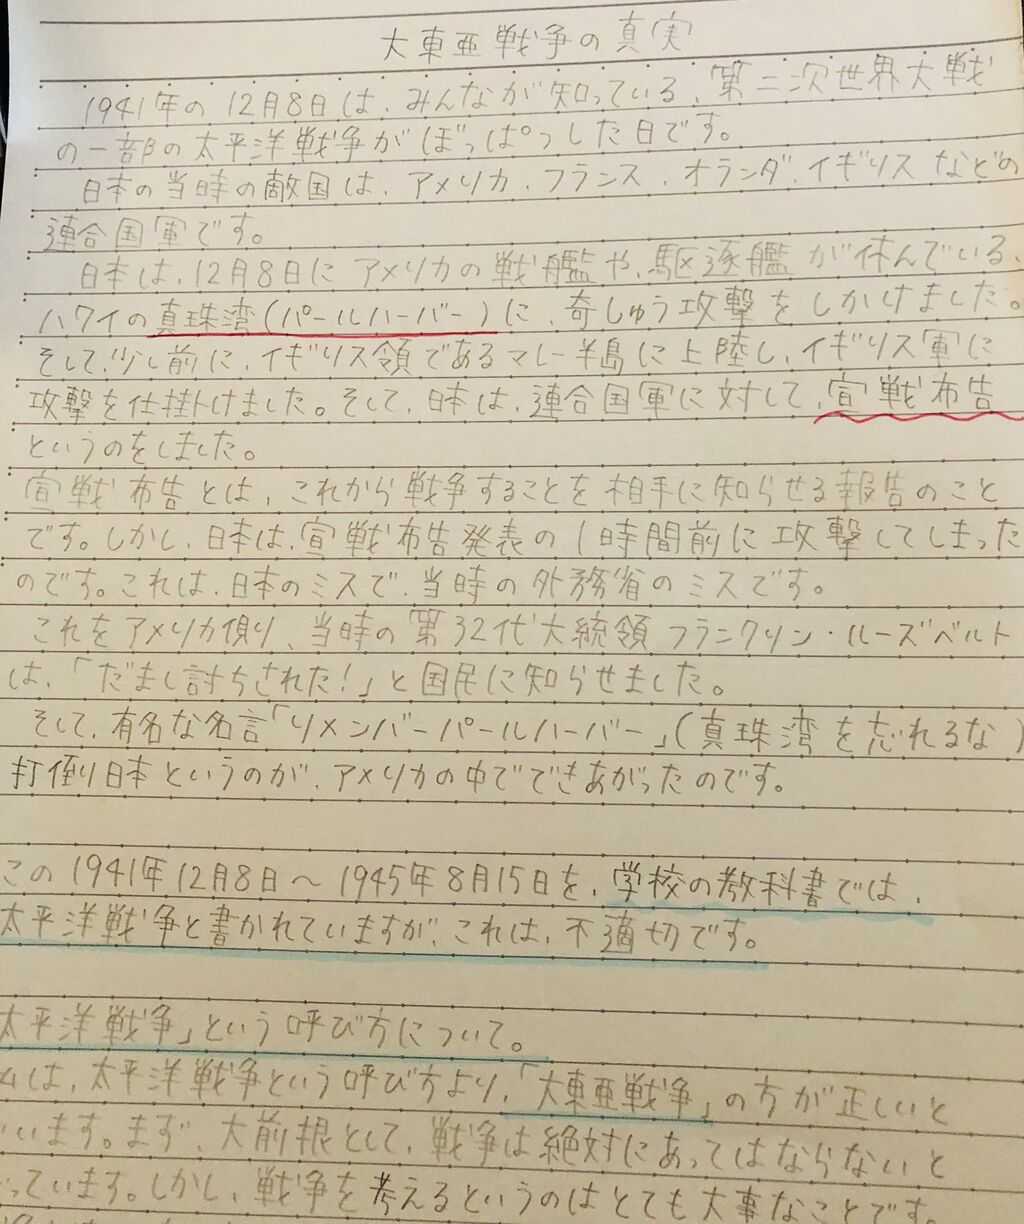 大東亜戦争の真実
1941年の12月8日は、みんなが知っている、第二次世界大戦
の一部の太平洋戦争がぼっぱつした日です。
日本の当時の敵国は、アメリカ、フランス、オランダ、イギリスなどの
連合国軍です。
日本は、12月8日にアメリカの戦艦や、駆逐艦が休んでいる、
ハワイの真珠湾(パールハーバー)に、奇しゅう攻撃をしかけました。
そして、少し前に、イギリス領であるマレー半島に上陸し、イギリス軍に
攻撃を仕掛けました。そして、日本は、連合国軍に対して、宣戦布告
というのをしました。
宣戦布告とは、これから戦争することを相手に知らせる報告のこと
です。しかし、日本は、宣戦布告発表の1時間前に攻撃してしまった
のです。これは、日本のミスで、当時の外務省のミスです。
これをアメリカ側、当時の第32代大統領フランクリン・ルーズベルト
は、「だまし討ちされた!」と国民に知らせました。
そして、有名な名言「リメンバーパールハーバー」(真珠湾を忘れるな)
打倒日本というのが、アメリカの中でできあがったのです。
この1941年12月8日〜1945年8月15日を、学校の教科書では、
太平洋戦争と書かれていますが、これは、不適切です。
太平洋戦争」という呼び方について。
は、太平洋戦争という呼び方より、「大東亜戦争」の方が正しいと
います。まず、大前提として、戦争は絶対にあってはならないと
っています。しかし、戦争を考えるというのはとても大事なことです。